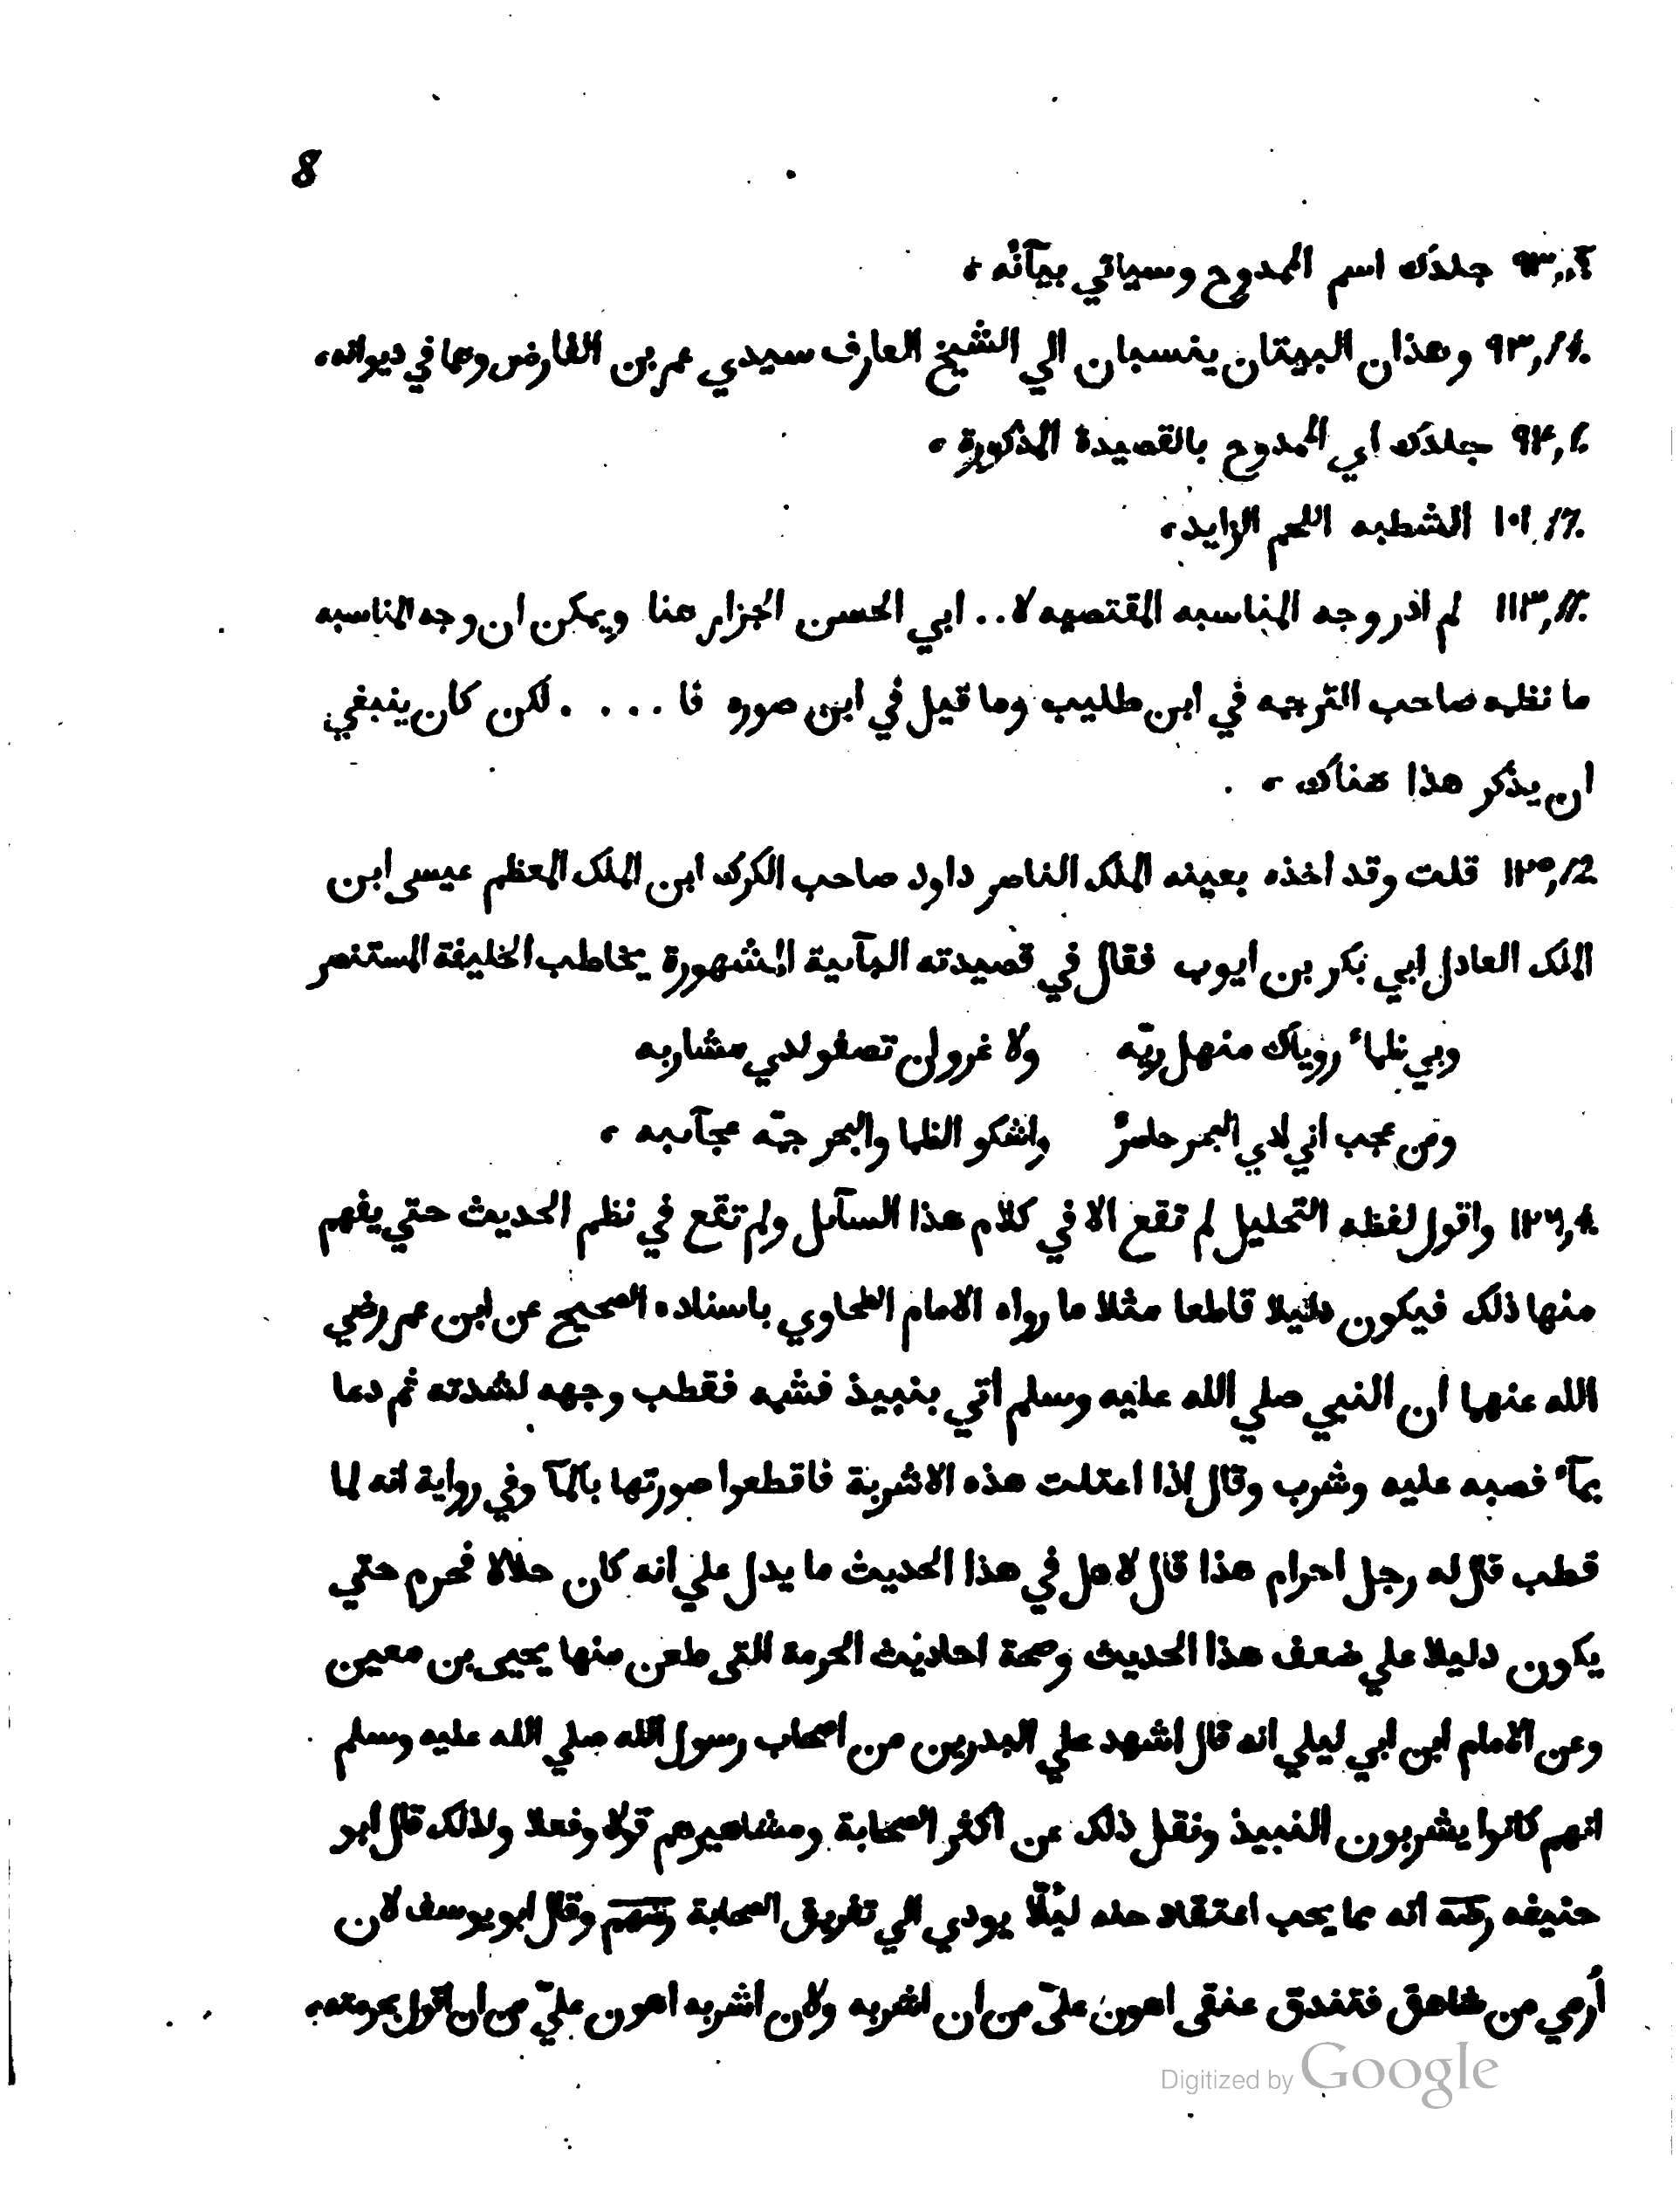 8
٩٣, جلدك اسم الممدوح وسياتي بيآنه ،
٩٣,١٨. وهذان البيتان ينسبان الي الشيخ العارف سيدي عمر بن الفارض وهما في ديوانه،
٩٤, جلدك اي الممدوح بالقصيدة المذكورة ،
١٠١, الشطبه اللحم الزايد،
١١٣, لم ادر وجه المناسبه المقتصيه لا.. ابي الحسن الجزار هنا ويمكن ان وجه المناسبه
ما نظمه صاحب الترجمه في ابن طليب وما قيل في ابن صوره فا .... لكن كان ينبغي
ان يذكر هذا هناك ،
١٢٥,12 قلت وقد اخذه بعينه الملك الناصر داود صاحب الكرك ابن الملك المعظم عيسى ابن
الملك العادل ابي بكر بن ايوب فقال في قصيدته البآىية المشهورة يخاطب الخليفة المستنصر
وبي ظماء روياك منهل ريّه ولا غرو ان تصفو لدي مشاربه
ومن عجب اني لدي البحر حاضرٌ واشكو الظما والبحر جمّه عجآىبه ،
١٢٦, واقول لفظه التحليل لم تقع الا في كلام هذا السآىل ولم تقع في نظم الحديث حتي يفهم
منها ذلك فيكون دليلا قاطعا مثلا ما رواه الامام الطحاوي باسناده الصحيح عن ابن عمر رضي
الله عنهما ان النبي صلي الله عليه وسلم اتي بنبيذ فشمه فقطب وجهه لشدته ثم دعا
بمآء فصبه عليه وشرب وقال اذا اعتلت هذه الاشربة فاقطعوا صورتها بالمآ وفي رواية انه لما
قطب قال له رجل احرام هذا قال لا هل في هذا الحديث ما يدل علي انه كان حلالا فحرم حتي
يكون دليلا علي ضعف هذا الحديث وصحة احاديث الحرمة التى طعن منها يحيى بن معين
وعن الامام ابن ابي ليلي انه قال اشهد علي البدرين من اصحاب رسول الله صلي الله عليه وسلم
انهم كانوا يشربون النبيذ ونقل ذلك عن اكثر الصحابة ومشاهيرهم قولا وفعلا ولذلك قال ابو
حنيفه رضه انه مما يجب اعتقاد حله لئلّا يودي الي تفريق الصحابة رضهم وقال ابو يوسف لان
أرمي من شاهق فتندق عنقى اهون عليّ من ان اشربه ولان اشربه اهون عليّ من ان اقول بحرمته،
Digitized by Google